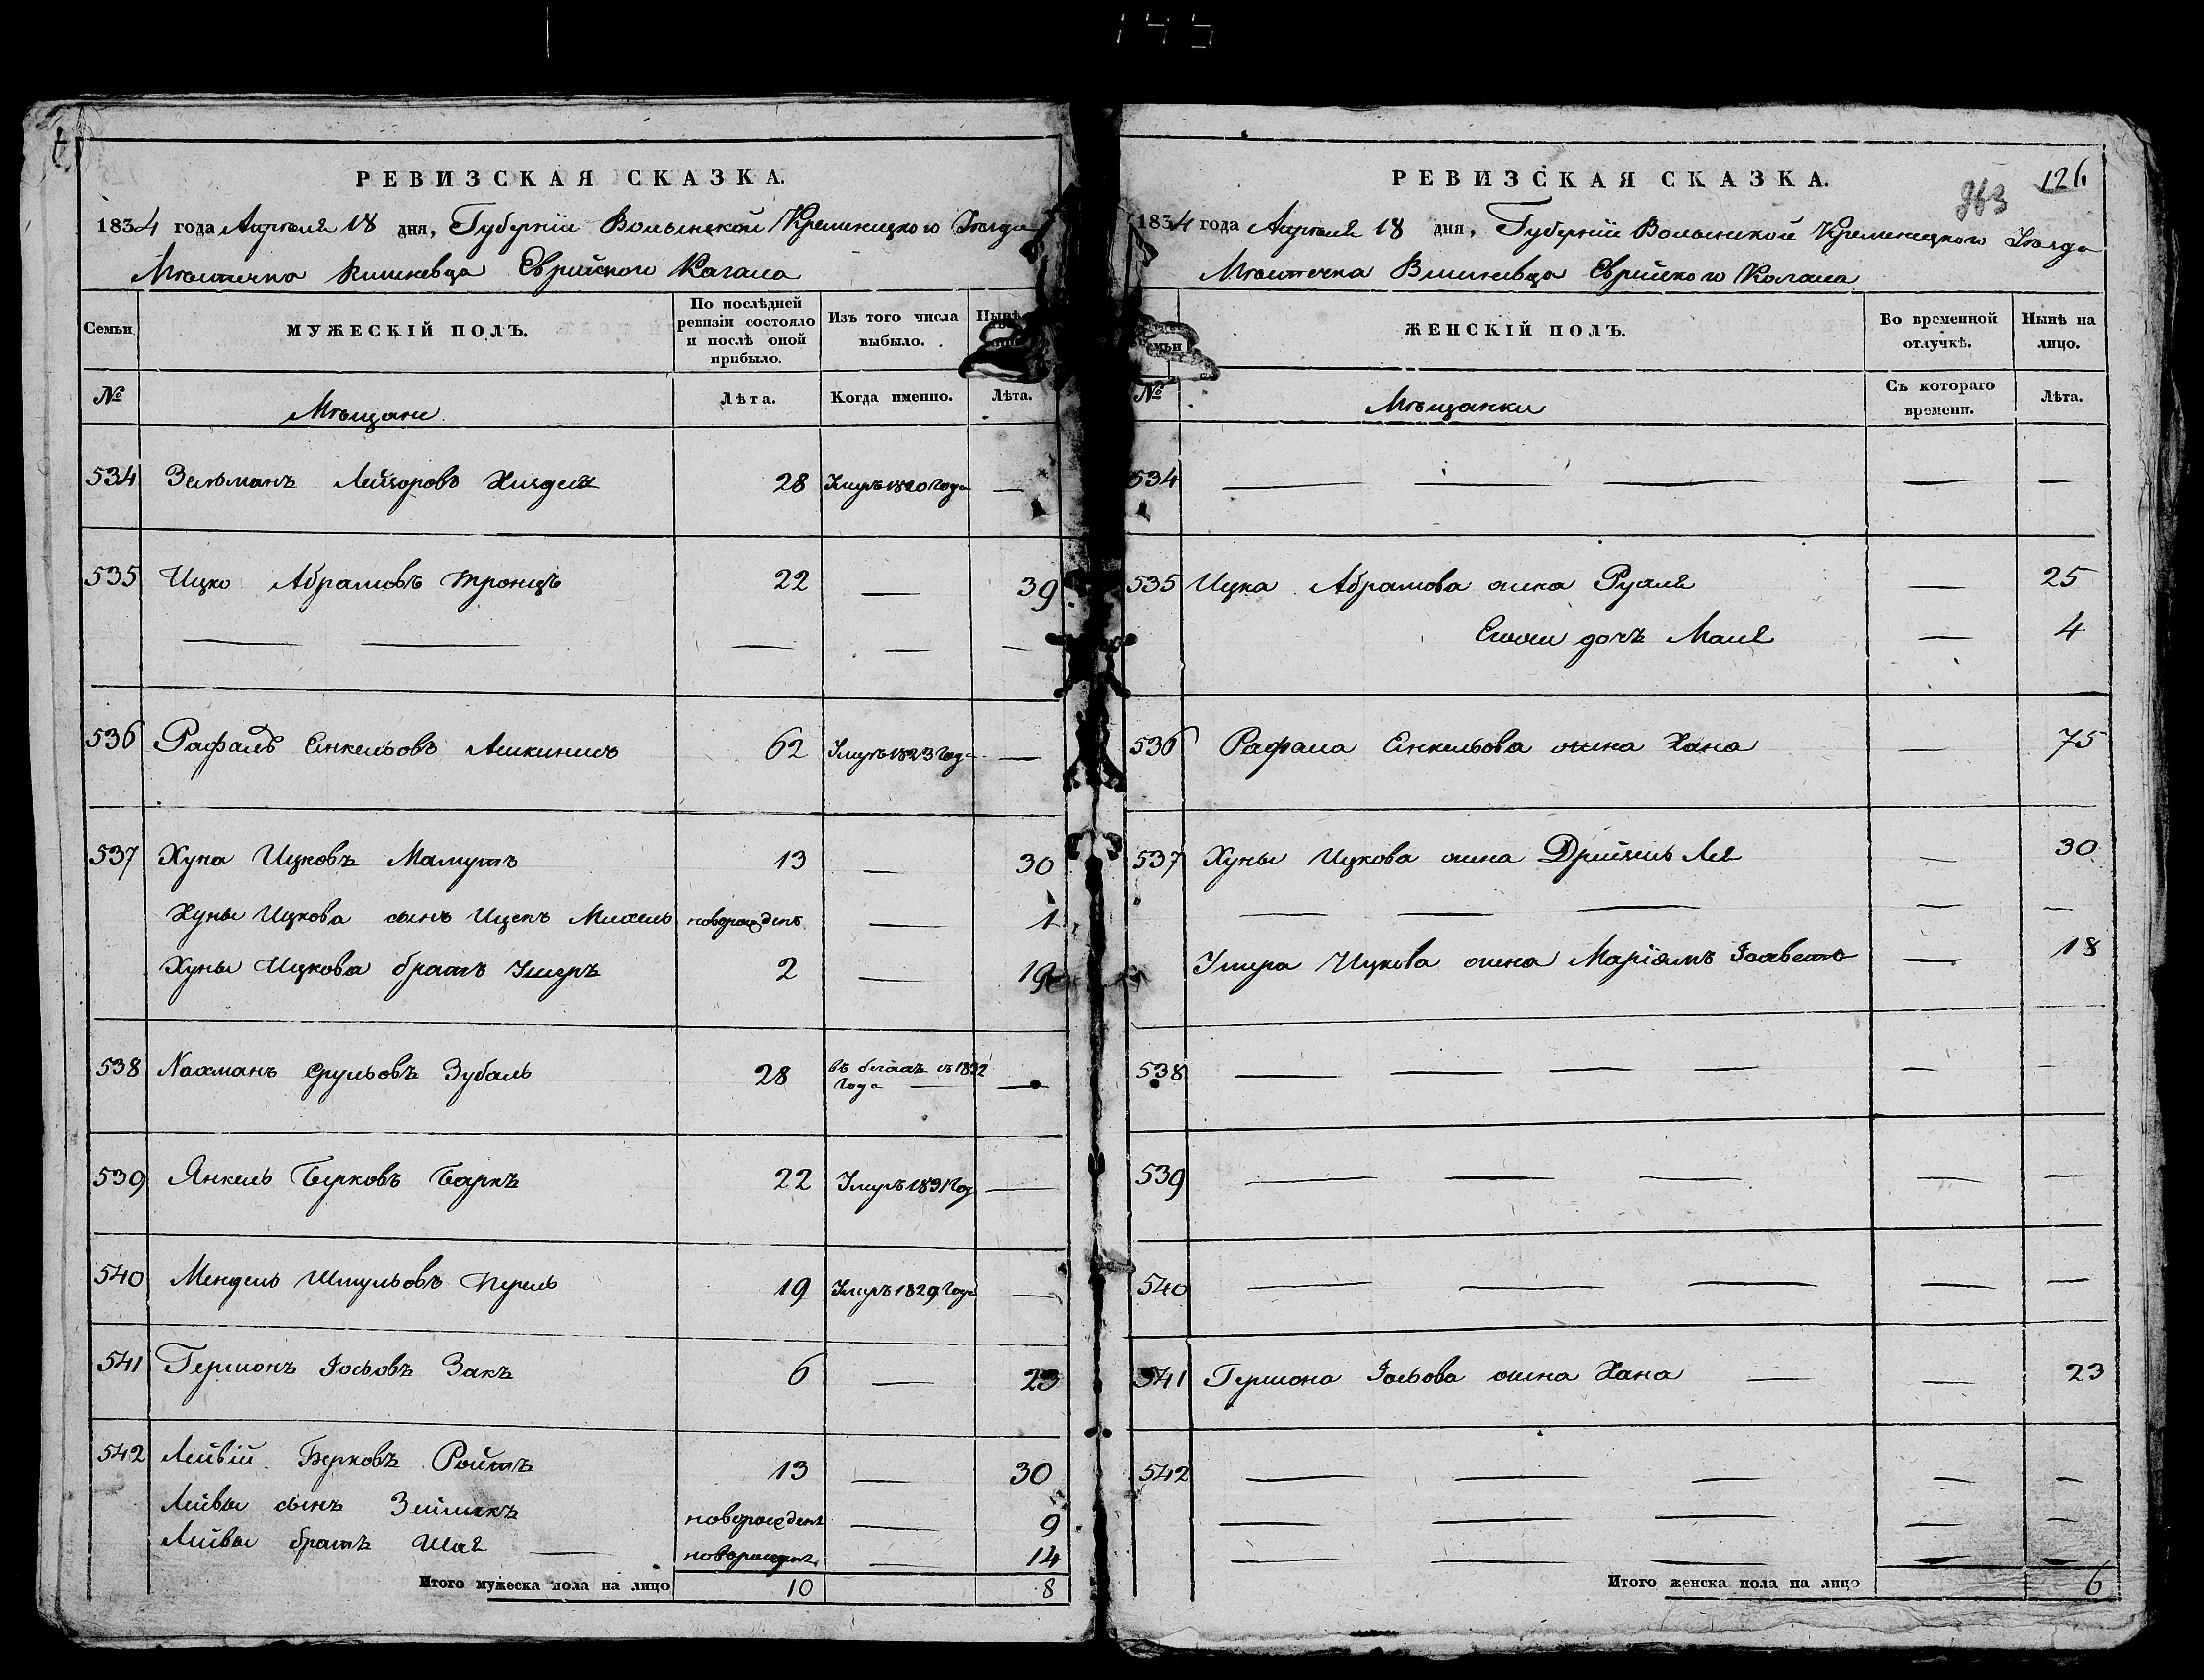 РЕВИЗСКАЯ СКАЗКА.
1834 года Апреля 18 дня, Губерніи Волынской Кременецкого Уезда
Местечка Вишневца Еврейского Кагала
Семьи
МУЖЕСКІЙ ПОЛЪ.
По послѣдней ревизіи состояло и послѣ оной прибыло.
Изъ того числа выбыло.
Нынѣ
№
Мѣщане
Лѣта.
Когда именно.
Лѣта.
534 Зельманъ Лейзоровъ 28 Умеръ 1820 года —
535 Ицко Абрамовъ 22 — 39
536 Рафаль Енкельовъ 62 Умеръ 1823 года —
537 Хуна Ицковъ Мамутъ 13 — 30
Хуны Ицкова сынъ Ицекъ Михель новорожденъ — 1
Хуны Ицкова братъ Умеръ 2 — 19
538 Нахманъ Срульовъ Зубаль 28 въ бегахъ съ 1832 года —
539 Янкель Берковъ Баркъ 22 Умеръ 1831 год —
540 Мендель Шмульовъ Перель 19 Умеръ 1829 года —
541 Гершонъ Іосьовъ Закъ 6 — 23
542 Лейвій Берковъ Ройтъ 13 — 30
Лейвы сынъ Зейликъ новорожденъ — 9
Лейвы братъ Шая — новорожденъ — 14
Итого мужеска пола на лицо 10 8
РЕВИЗСКАЯ СКАЗКА.
126
963
1834 года Апреля 18 дня, Губерніи Волынской Кременецкого Уезда
Местечка Вишневца Еврейского Кагала
ЖЕНСКІЙ ПОЛЪ.
Во временной отлучкѣ.
Нынѣ на лицо.
№
Мѣщанки
Съ котораго времени.
Лѣта.
534 — — — — —
535 Ицка Абрамова жена Рухля — 25
Егожъ дочъ Маля — 4
536 Рафала Енкельова жена Хана — 75
537 Хуны Ицкова жена Лея — 30
— — — — —
Умера Ицкова жена Маріямъ — 18
538 — — — — — —
539 — — — — —
540 — — — — —
541 Гершона Іосьова жена Хана — — 23
542 — — — — —
— — — — —
— — — — —
Итого женска пола на лицо 6